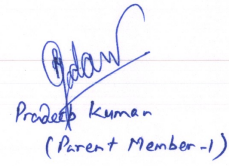 Pradeep Kumar
(Parent Member-1)